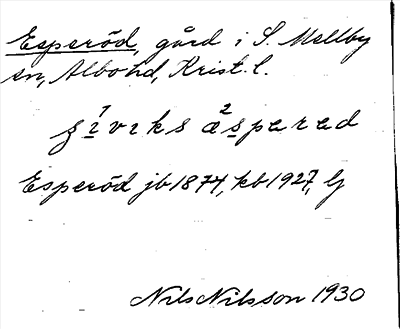 Esperöd, gård i S. Mellby
sn, Albo hd, Krist. l.
ʒ i¹viks æ²sparad
Esperöd jb 1874, kb 1927, lj
Nils Nilsson 1930